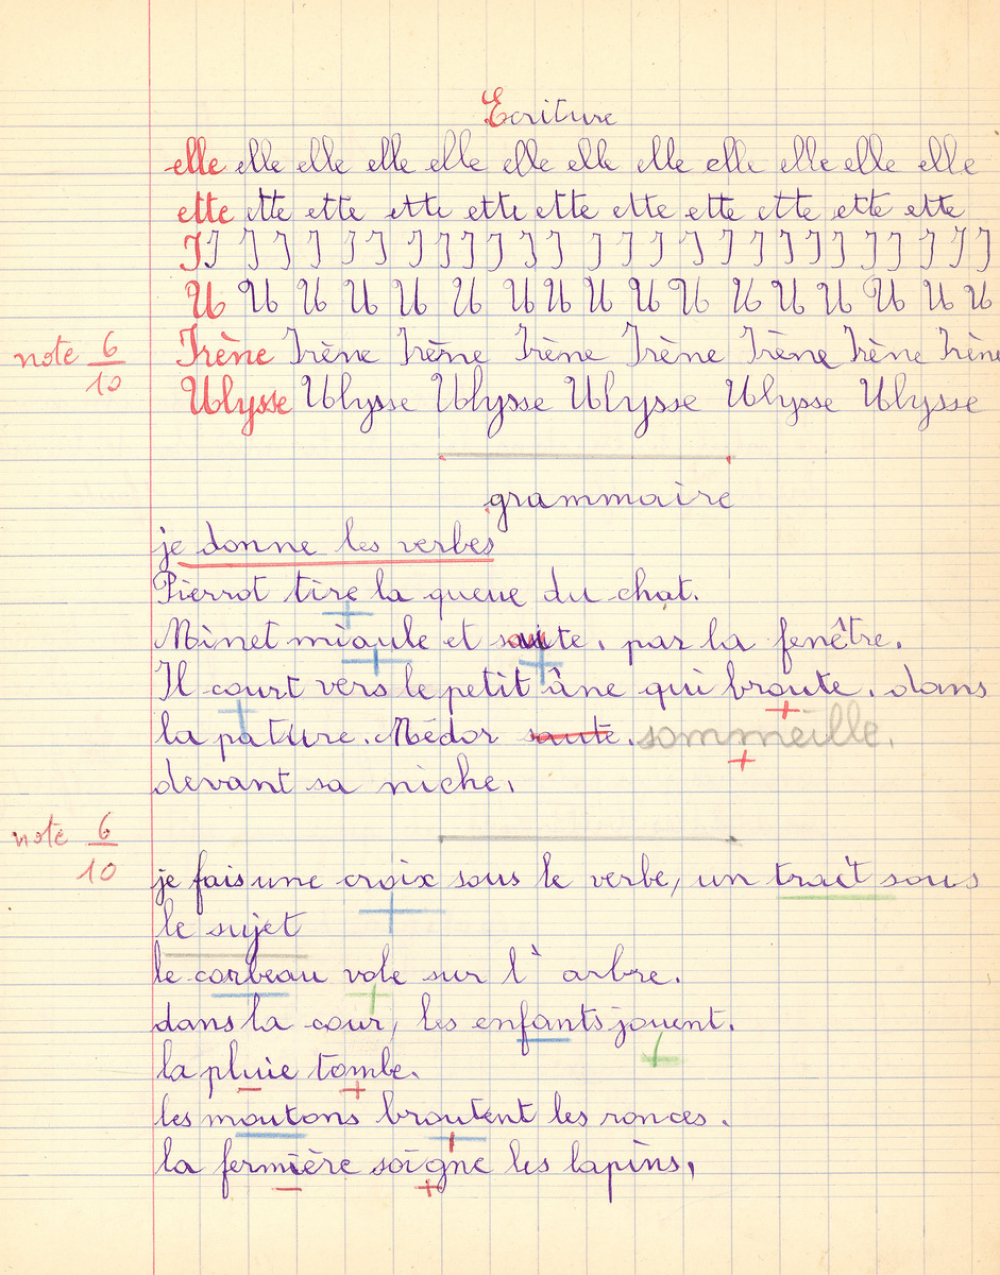 Ecriture
elle elle elle elle elle elle elle elle elle elle elle elle
ette ette ette ette ette ette ette ette ette ette ette
I I I I I I I I I I I I I I I I I I I I I I I I I I I
U U U U U U U U U U U U U U U U U
note 6/10
Irène Irène Irène Irène Irène Irène Irène Irène
Ulysse Ulysse Ulysse Ulysse Ulysse Ulysse
grammaire
je donne les verbes
Pierrot tire la queue du chat.
Minet miaule et saute. par la fenêtre.
Il court vers le petit âne qui broute. dans
la pature. Médor saute. sommeille.
devant sa niche.
note 6/10
je fais une croix sous le verbe, un trait sous
le sujet
le corbeau vole sur l' arbre.
dans la cour, les enfants jouent.
la pluie tombe.
les moutons broutent les ronces.
la fermière soigne les lapins.